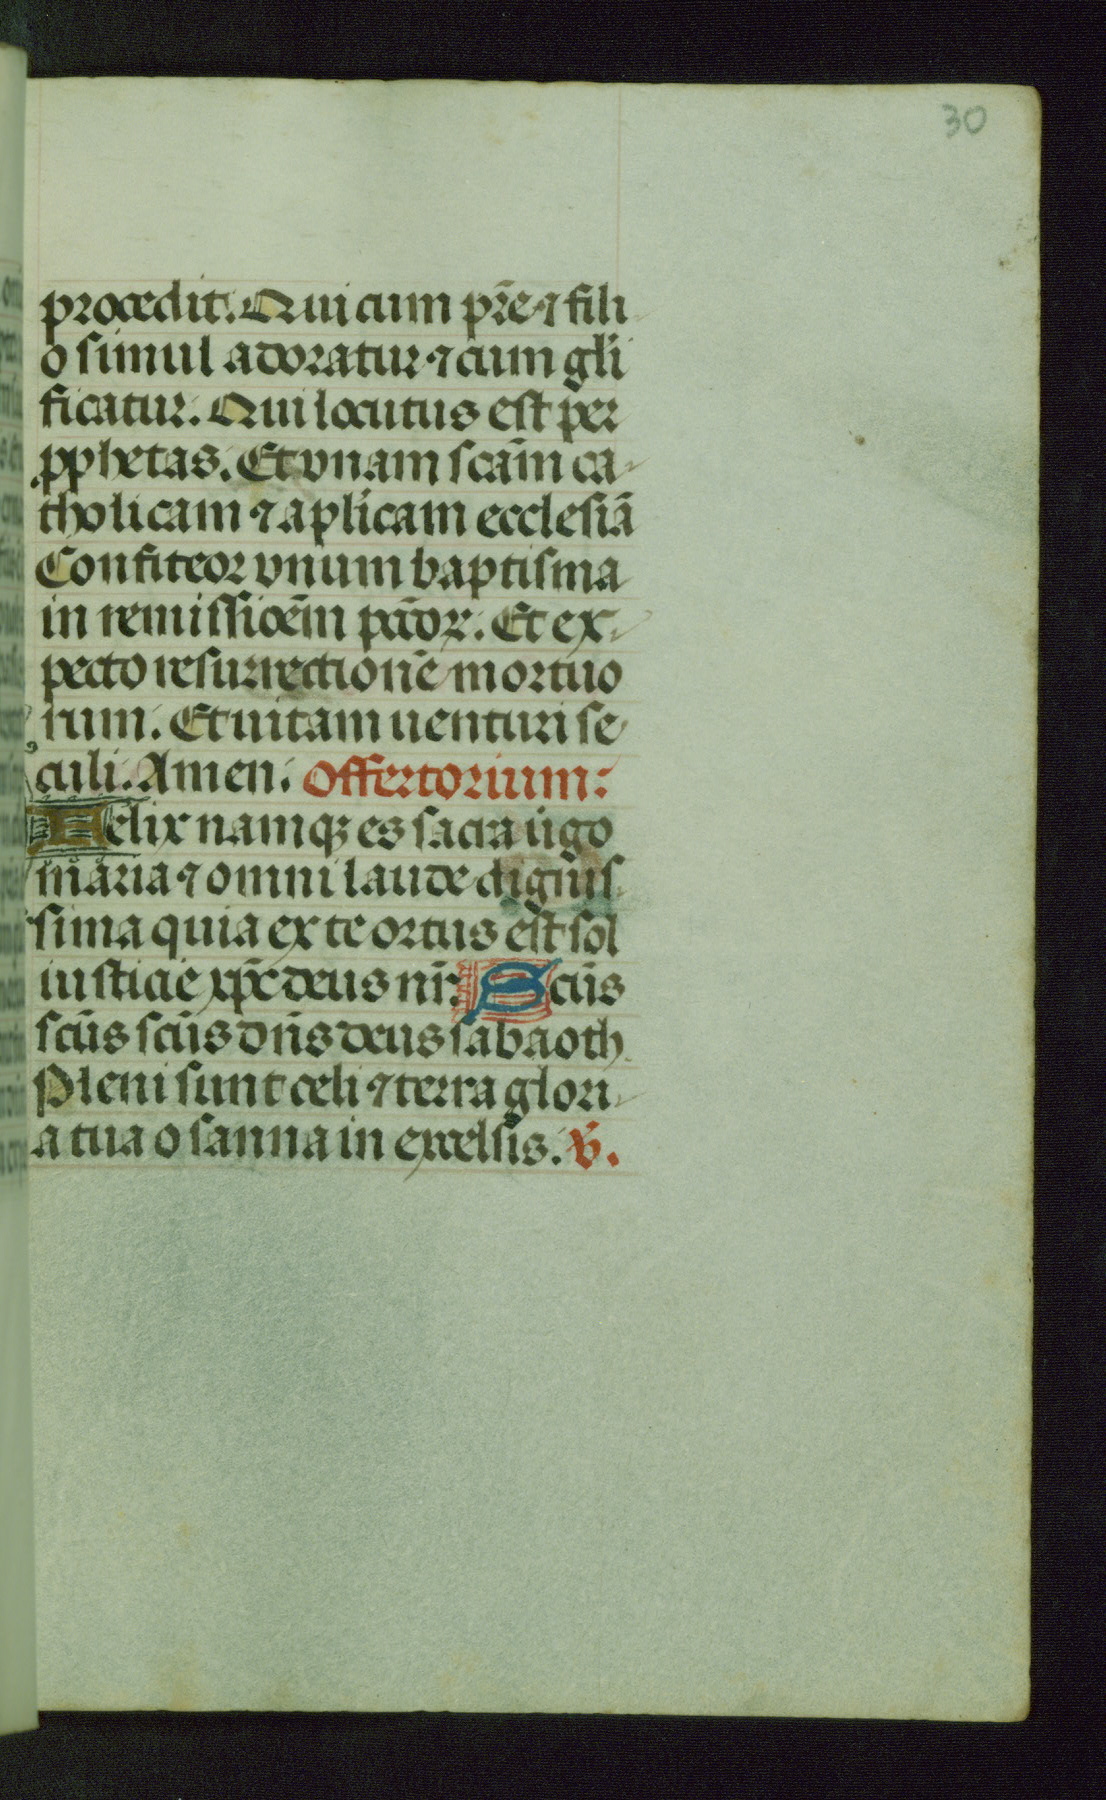 30
procedit. Qui cum pr̄e ⁊ fili
o simul adoratur ⁊ cum gl̄i
ficatur. Qui locutus est per
ꝓphetas. Et vnam scām ca
tholicam ⁊ apl̄icam ecclesiā
Confiteor vnum baptisma
in remissioēm pctōꝝ. Et ex
pecto resurrectionē mortuo
rum. Et uitam uenturi se
culi. Amen. Offertorium:
Felix namqꝫ es sacra uīgo
maria ⁊ omni laude dignis
sima quia ex te ortus est sol
iusticie xp̄c deus nr̄. Scūs
scūs scūs dn̄s deus sabaoth
Pleni sunt celi ⁊ terra glori
a tua osanna in excelsis. v̄.